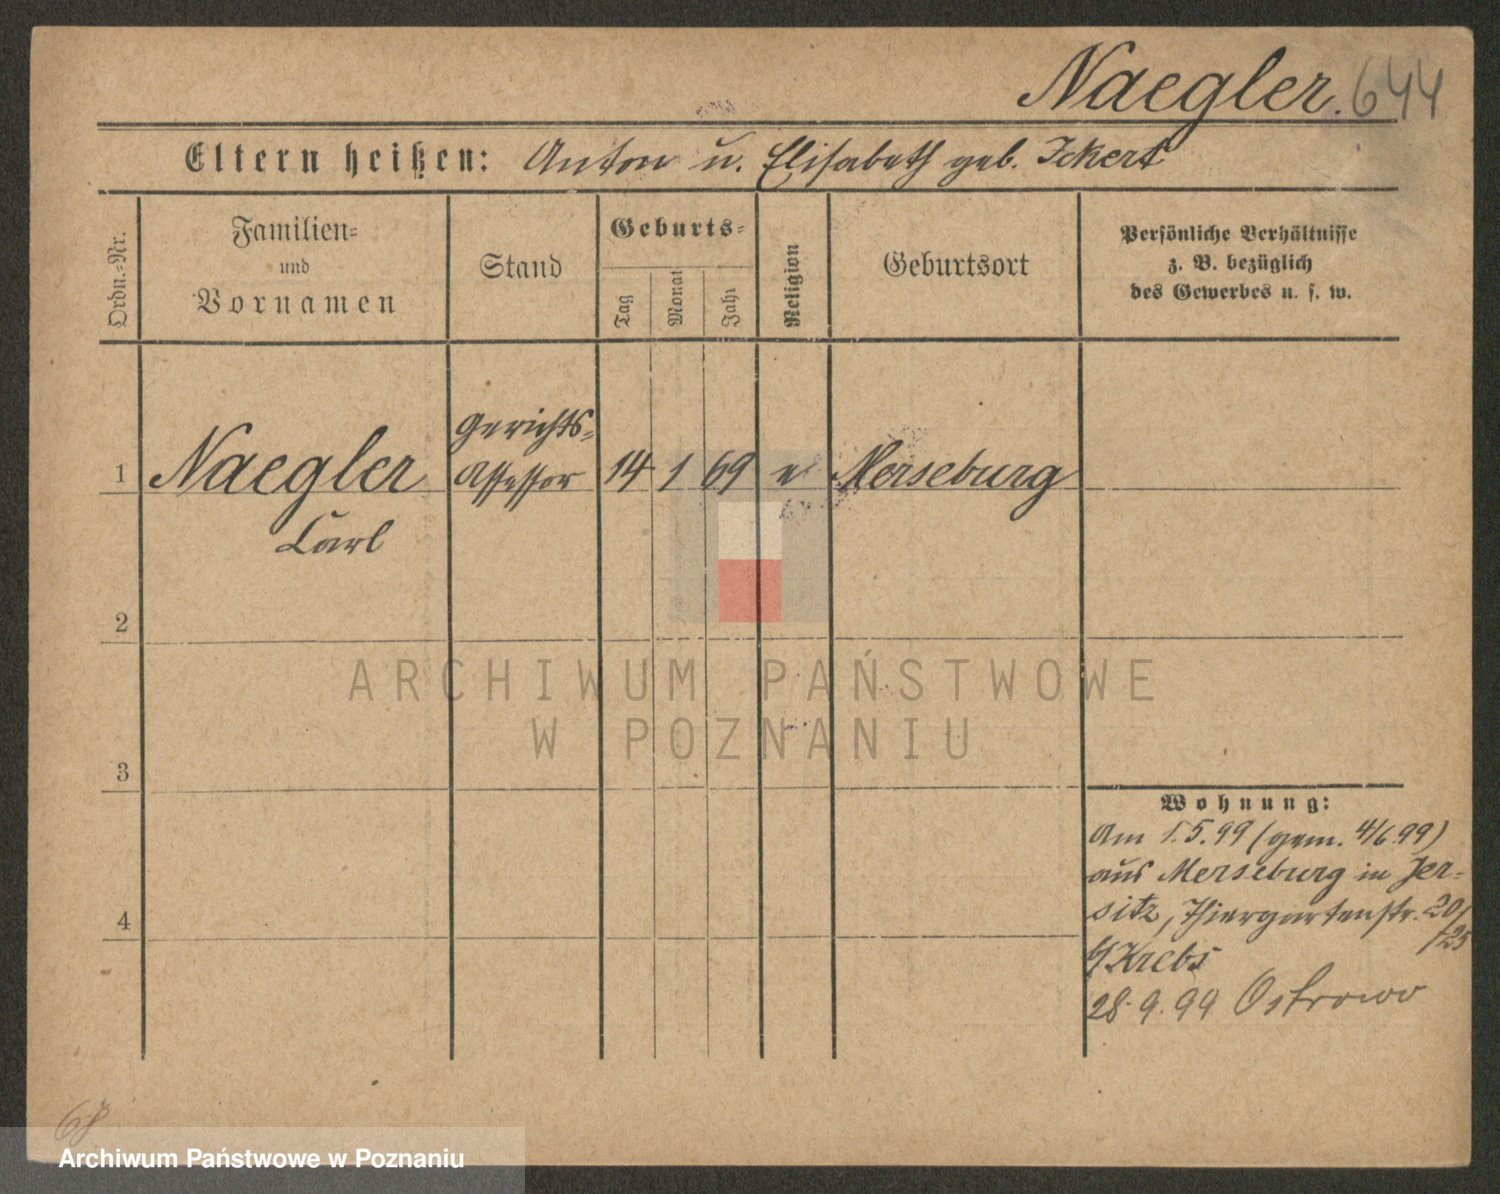 Naegler. 644
Eltern heißen: Anton u. Elisabeth geb. Ickert
Ordn.=Nr.
Familien=
und
Vornamen
Stand
Geburts=
Tag
Monat
Jahr
Religion
Geburtsort
Persönliche Verhältnisse
z. B. bezüglich
des Gewerbes u. s. w.
Gerichts=
1 Naegler Assessor 14 1 69 e Merseburg
Carl
2
ARCHIWUM PAŃSTWOWE
W POZNANIU
3
Wohnung:
Am 1.5.99 (gem. 4/6.99)
aus Merseburg in Jer=
sitz, Thiergartenstr. 20/
/25
4
b/Krebs
28.9.99 Ostrowo
68
Archiwum Państwowe w Poznaniu